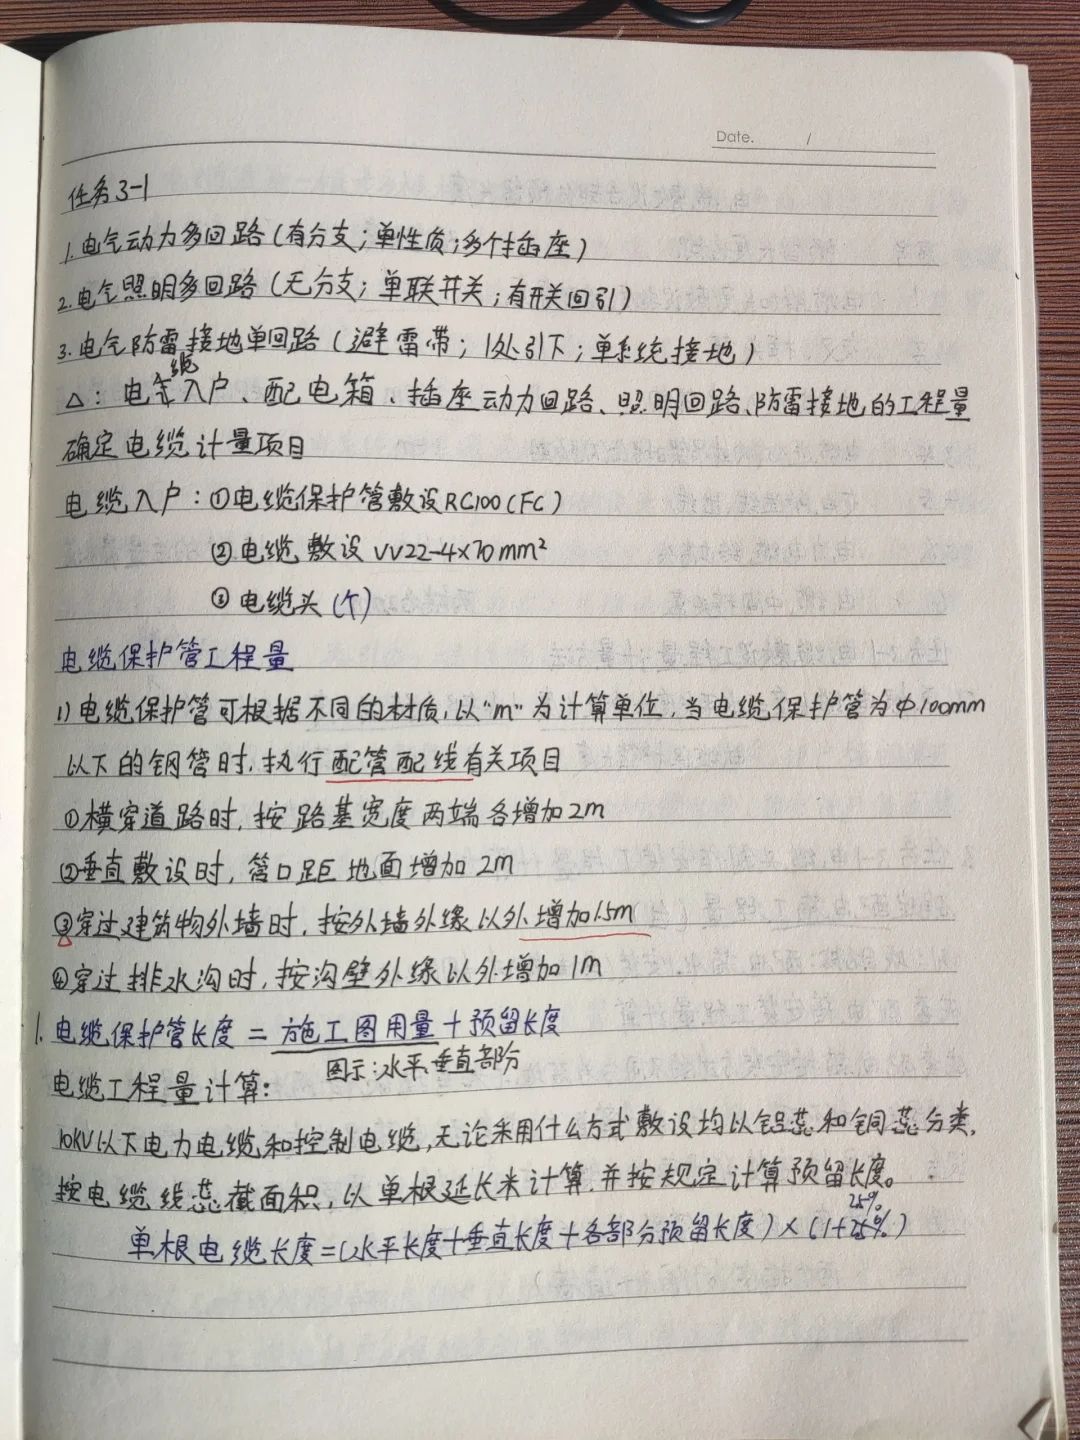 Date. /
任务3-1
1.电气动力多回路(有分支;单性质;多个插座)
2.电气照明多回路(无分支;单联开关;有开关回引)
3.电气防雷接地单回路(避雷带;1处引下;单系统接地)
△:电缆入户、配电箱、插座动力回路、照明回路、防雷接地的工程量
确定电缆计量项目
电缆入户:①电缆保护管敷设RC100(FC)
②电缆敷设VV22-4×70mm²
③电缆头(个)
电缆保护管工程量
1)电缆保护管可根据不同的材质,以"m"为计算单位,当电缆保护管为Φ100mm
以下的钢管时,执行配管配线有关项目
①横穿道路时,按路基宽度两端各增加2m
②垂直敷设时,管口距地面增加2m
③穿过建筑物外墙时,按外墙外缘以外增加1.5m
④穿过排水沟时,按沟壁外缘以外增加1m
1.电缆保护管长度=施工图用量+预留长度
图示:水平、垂直部分
电缆工程量计算:
10KV以下电力电缆和控制电缆,无论采用什么方式敷设均以铝芯和铜芯分类,
按电缆线芯截面积,以单根延长米计算,并按规定计算预留长度。
2.5%
单根电缆长度=(水平长度+垂直长度+各部分预留长度)×(1+2.5%)